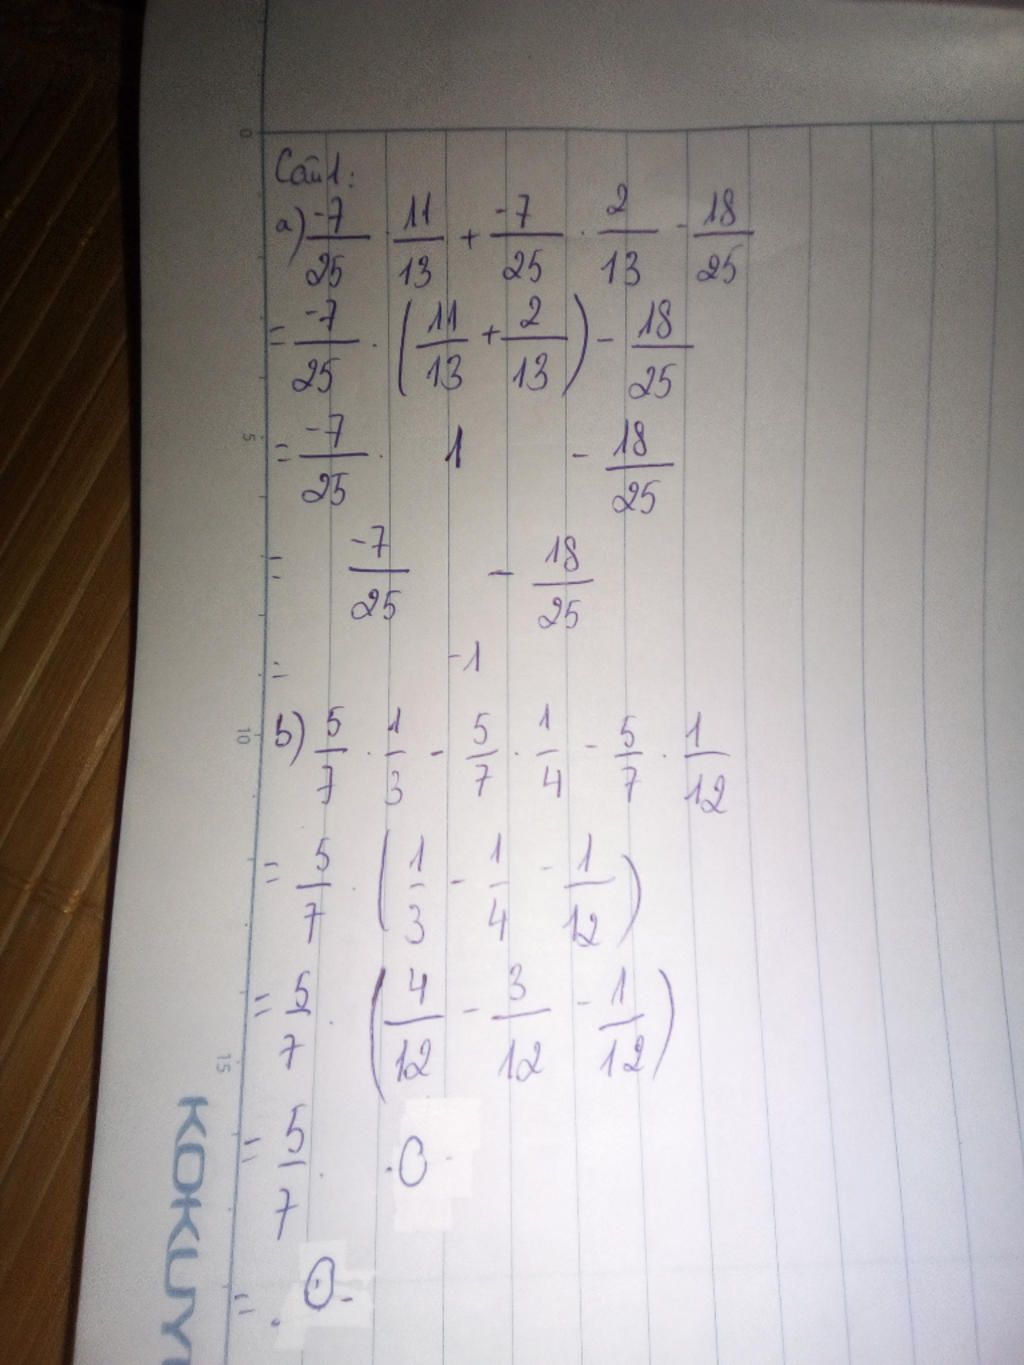 Câu 1:
a) -7/25 · 11/13 + -7/25 · 2/13 - 18/25
= -7/25 · (11/13 + 2/13) - 18/25
= -7/25 · 1 - 18/25
= -7/25 - 18/25
= -1
b) 5/7 · 1/3 - 5/7 · 1/4 - 5/7 · 1/12
= 5/7 · (1/3 - 1/4 - 1/12)
= 5/7 · (4/12 - 3/12 - 1/12)
= 5/7 · 0
= 0
0
5
10
15
KOKUY